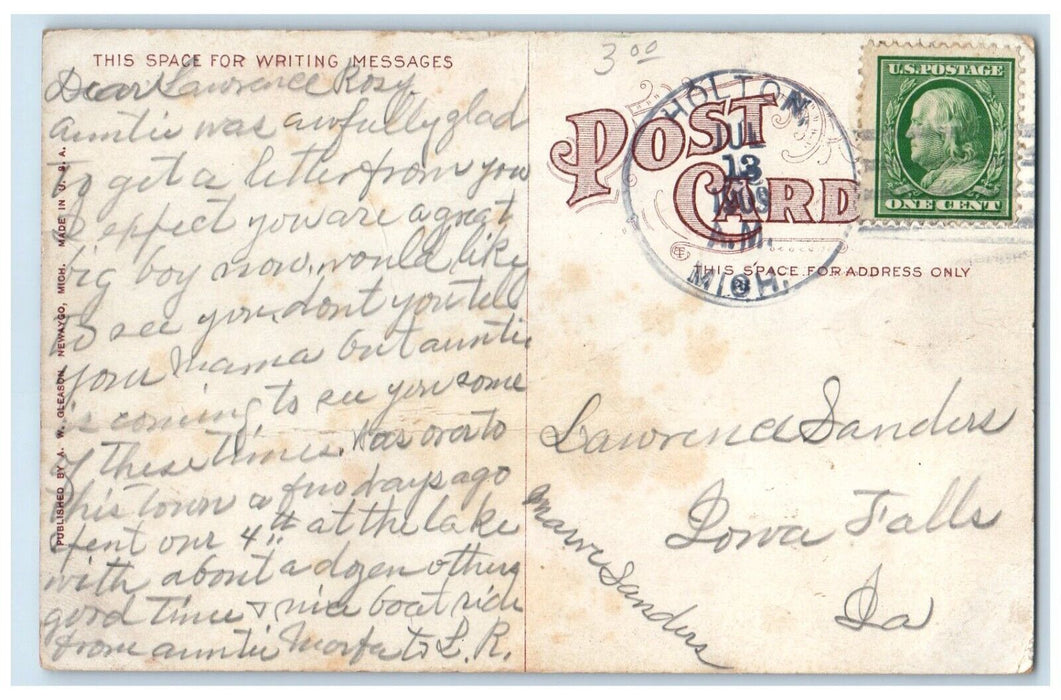 THIS SPACE FOR WRITING MESSAGES
Dear Lawrence Rosy.
auntie was awfully glad
to get a letter from you
I expect you are a great
big boy now, would like
to see you, dont you tell
your Mama but auntie
is coming to see you some
of these times. was over to
this town a few days ago
spent our 4th at the lake
with about a dozen others
good time & nice boat ride
from auntie to L. R.
PUBLISHED BY A. W. GLEASON, NEWAYGO, MICH. MADE IN U. S. A.
3.00
POST CARD
HOLTON,
JUL
13
1909
A.M.
MICH.
U.S. POSTAGE
ONE CENT
THIS SPACE FOR ADDRESS ONLY
Lawrence Sanders
Iowa Falls
Ia
Sanders